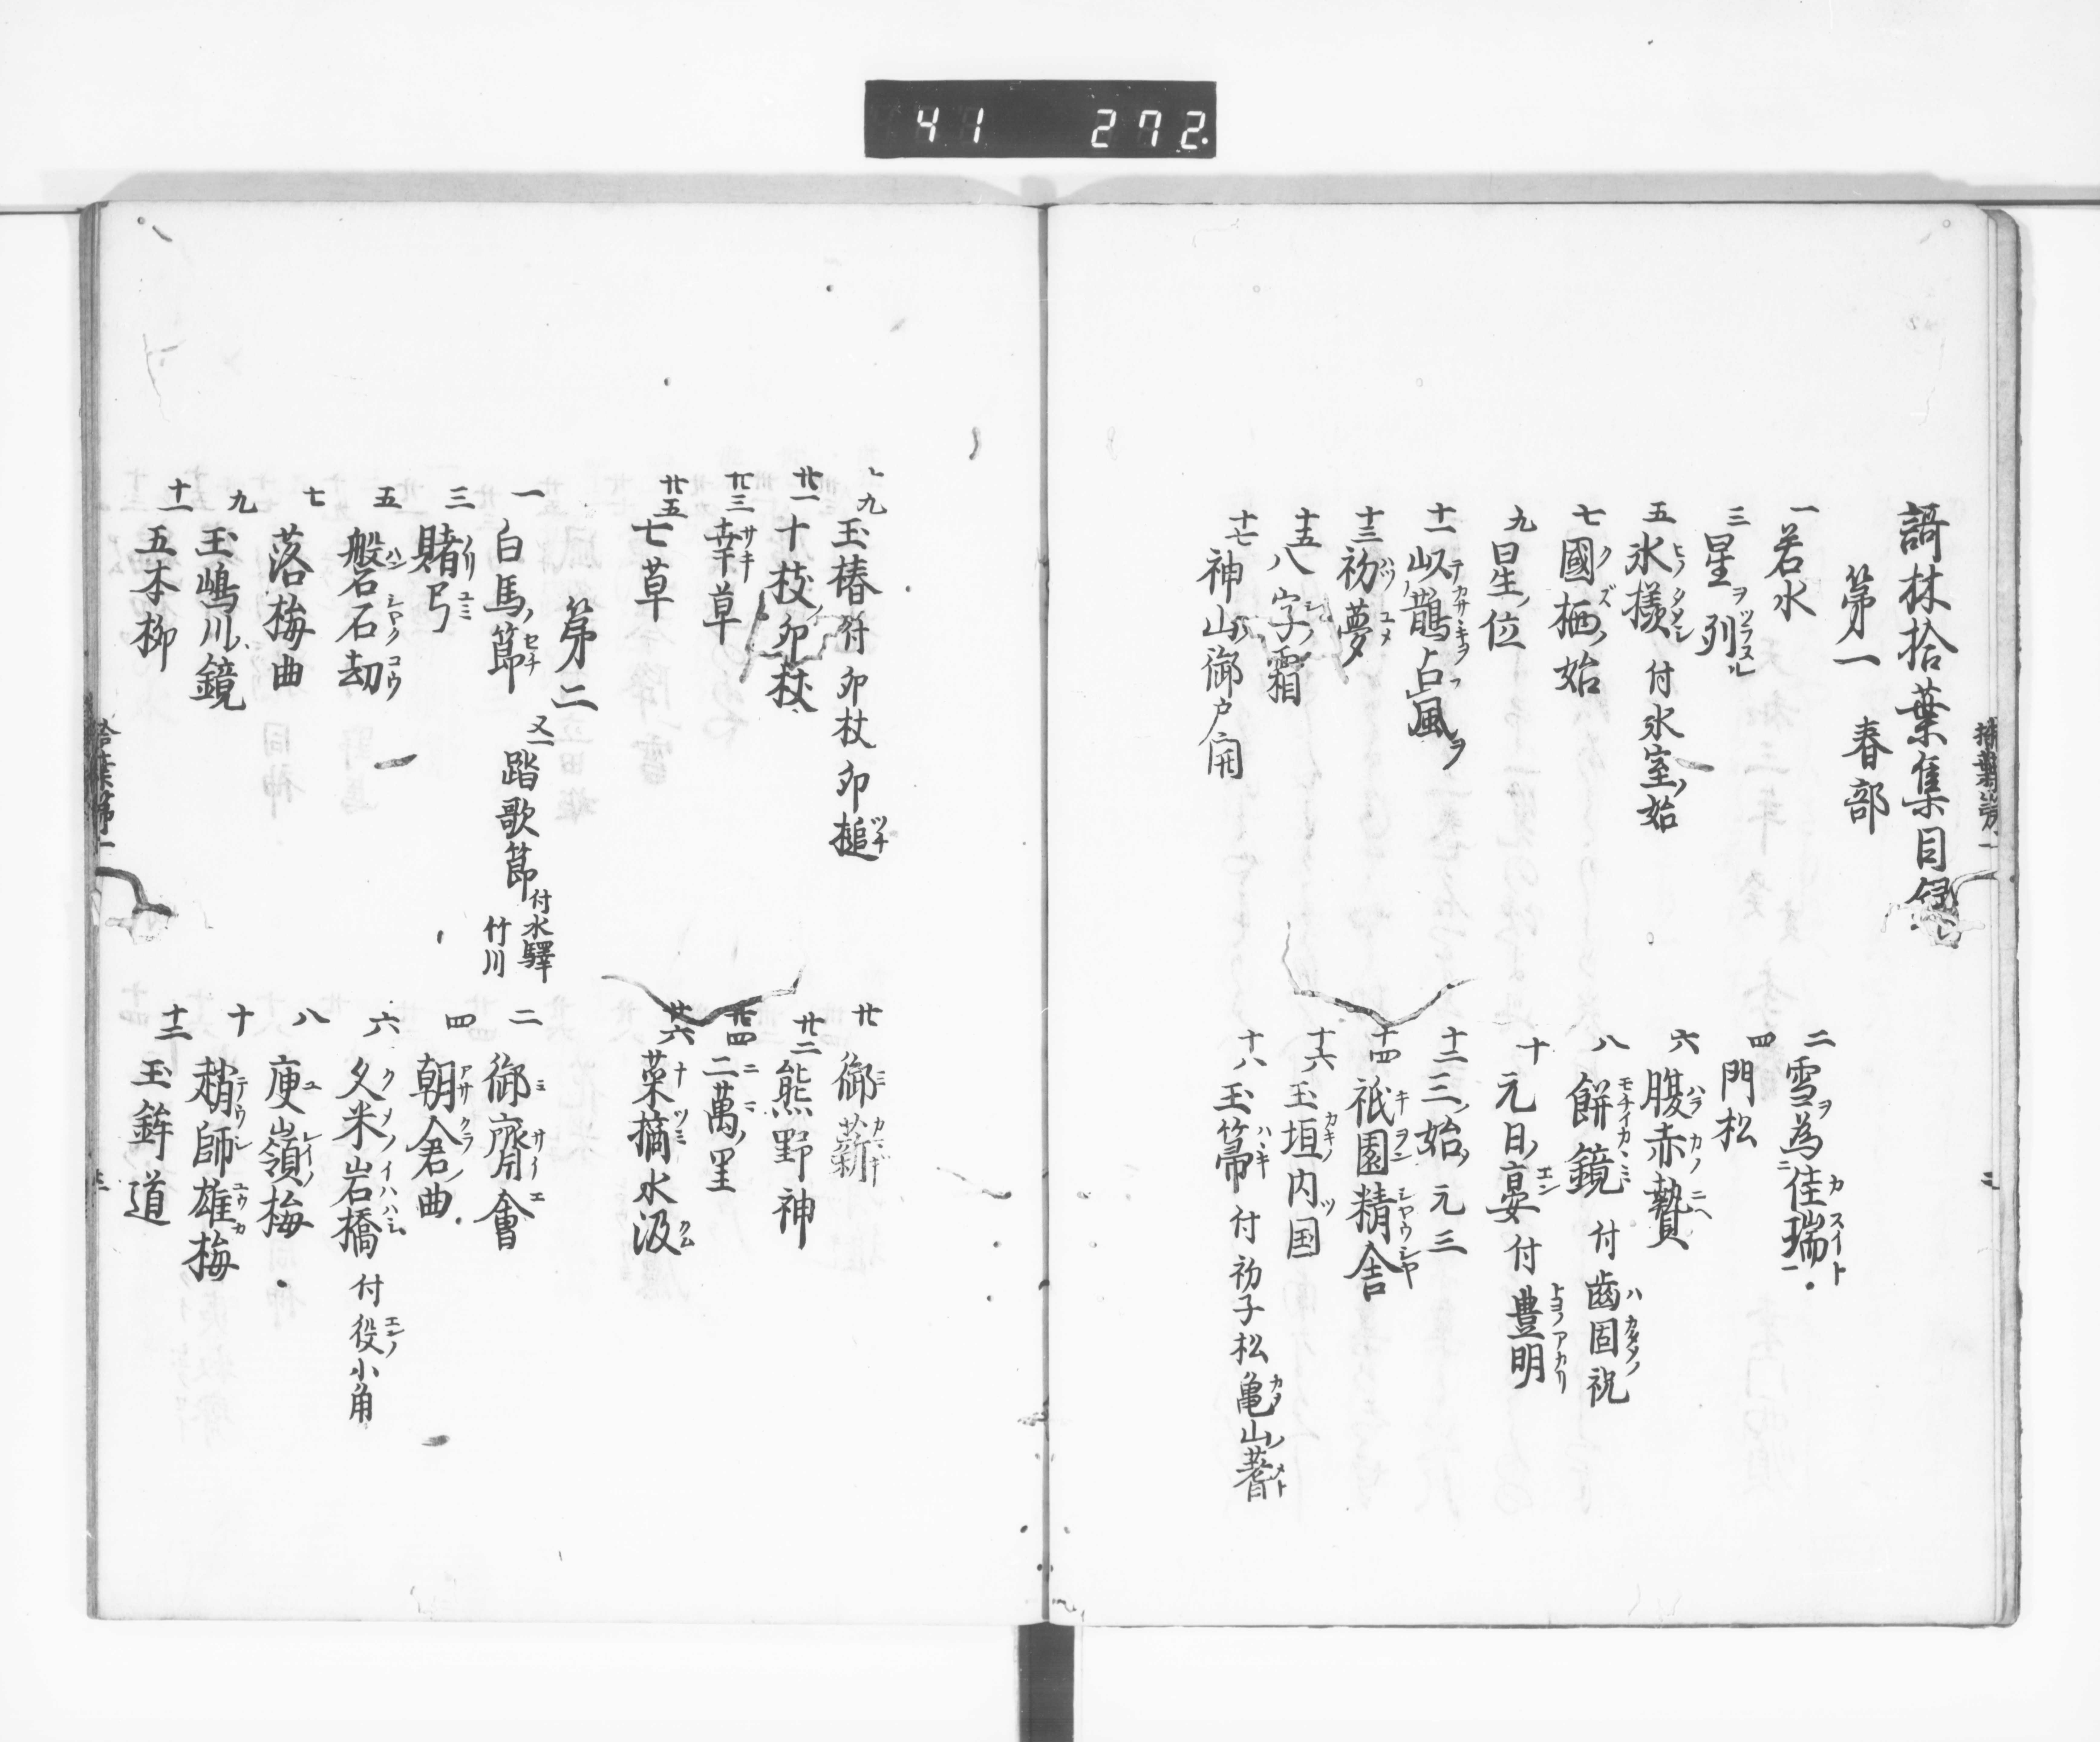 41 272.
謌林拾葉集目録
第一 春部
一 若水
二 雪ヲ為佳瑞ト
三 星ヲ列
四 門松
五 氷様 付氷室ノ始
六 腹赤贄
七 國栖ノ始
八 餅鏡 付歯固祝
九 星ノ位
十 元日ノ宴 付豊明
十一 以鵲占風ヲ
十二 三ノ始 元三
十三 初夢
十四 祇園精舎
十五 八字ノ霜
十六 玉垣内国
十七 神山御戸開
十八 玉箒 付初子松亀山蓍
九 玉椿 付卯杖卯槌
廿 御薪
廿一 十枝ノ卯杖
廿二 熊野神
廿三 幸草
廿四 二萬ノ里
廿五 七草
廿六 菜摘水汲
第二
一 白馬ノ節 又一踏歌節 付水驛 竹川
二 御齋會
三 賭弓
四 朝倉ノ曲
五 盤石劫
六 久米岩橋 付役小角
七 落梅曲
八 庾嶺梅
九 玉嶋川ノ鏡
十 趙師雄梅
十一 五本柳
十二 玉鉾道